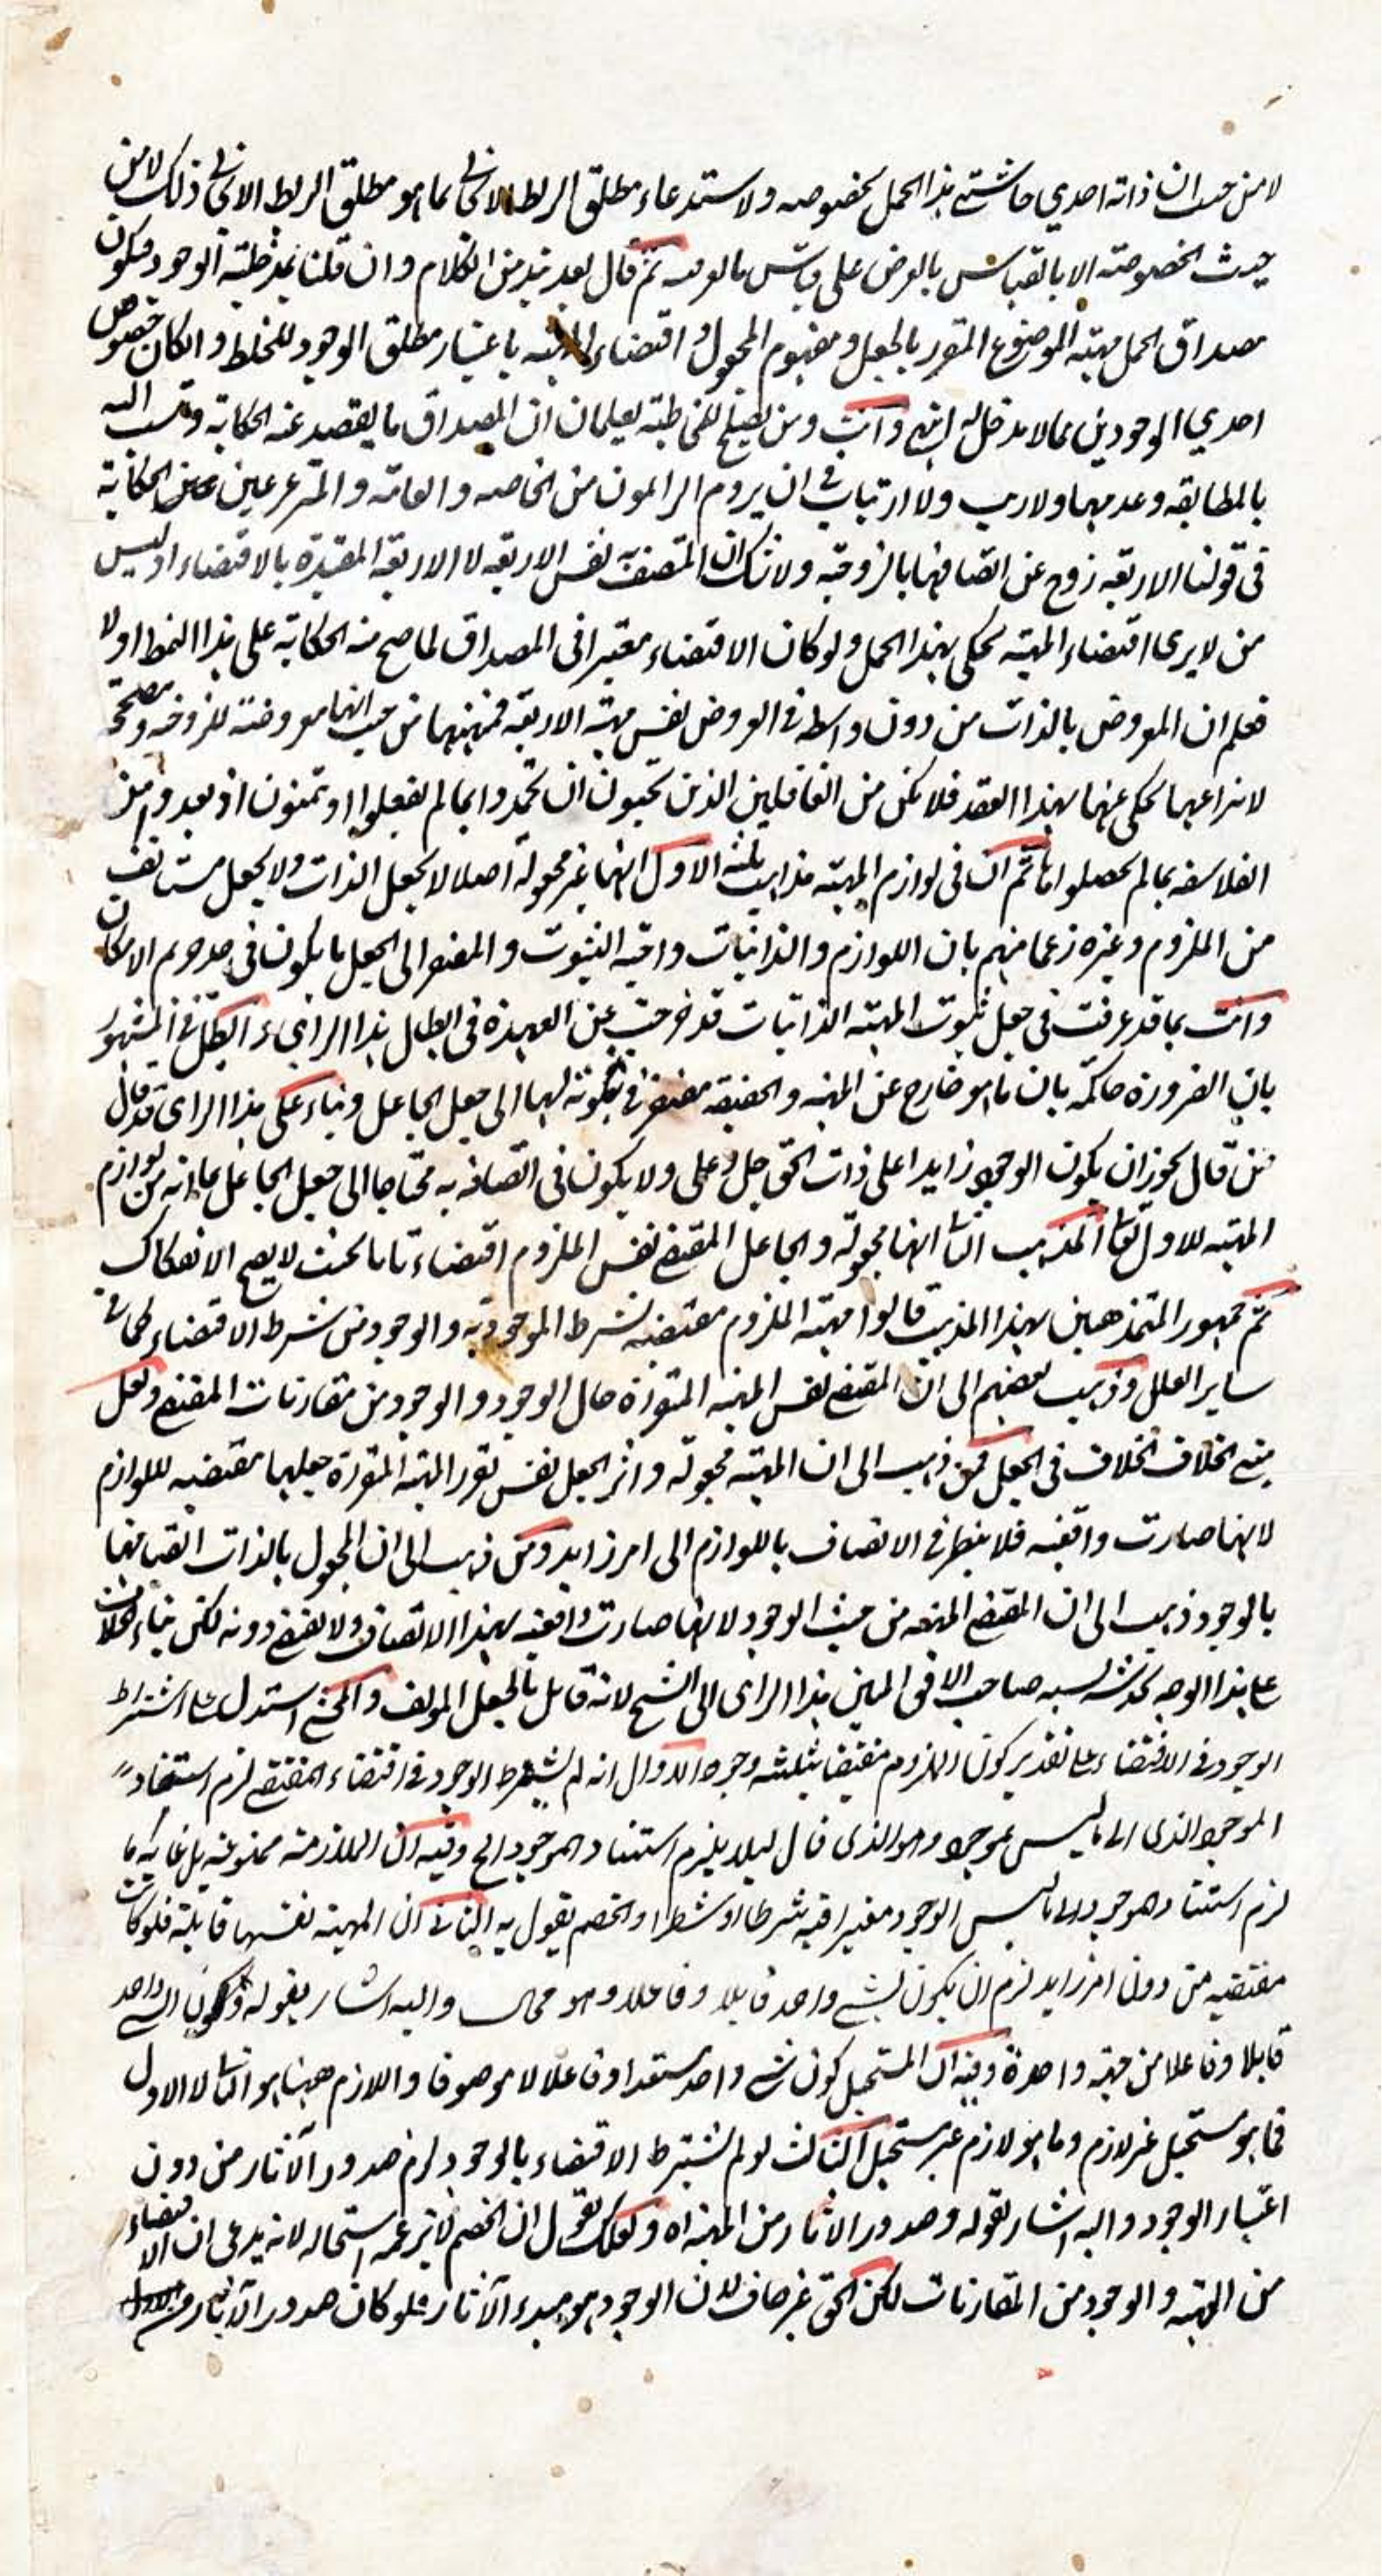 لا من حيث ان ذاته احدي حاشيتي هذا الحمل بخصوصه ولاستدعاء مطلق الربط الايجابي بما هو مطلق الربط الايجابي ذلك لا من
حيث الخصوصية الا بالقياس بالعرض على قياس ما بالعرض ثم قال بعد نبذ من الكلام وان قلنا بمدخلية الوجود فيكون
مصداق الحمل مهية الموضوع المتقرر بالجعل ومفهوم المحمول واقتضاء المهية باعتبار مطلق الوجود للخلط وان كان خصوص
احدي الوجودين مما لا مدخل له انتهى وانت ومن يصلح للمخاطبة يعلمان ان المصداق ما يقصد عنه الحكاية وتنسب اليه
بالمطابقة وعدمها ولا ريب ولا ارتياب في ان يروم الرامون من الخاصه والعامة والمترعرعين عن الحكاية
فى قولنا الاربعة زوج عن اتصافها بالزوجية ولا شك ان المتصف نفس الاربعة لا الاربعة المقيدة بالاقتضاء اوليس
من لا يرى اقتضاء المهية يحكى بهذا الحمل ولو كان الاقتضاء معتبرا فى المصداق لما صح منه الحكاية على هذا النمط اولا
فعلم ان المعروض بالذات من دون واسطة فى العروض نفس مهية الاربعة فمهيتها من حيث انها معروضة للزوجية ومصححة
لانتزاعها يحكى عنها بهذا العقد فلا تكن من الغافلين الذين يحبون ان يحمدوا بما لم يفعلوا او يتمنون ان يعدوا من
الفلاسفة بما لم يحصلوا ثم ان فى لوازم المهية مذاهب ثلثة الاول انها غير مجعولة اصلا لا بجعل الذات ولا بجعل مستانف
من الملزوم وغيره زعما منهم بان اللوازم والذاتيات واجبة الثبوت والمفتقر الى الجعل ما يكون فى حد حريم الامكان
وانت بما قد عرفت فى جعل ثبوت المهية الذاتيات قد خرجت عن العهدة فى ابطال هذا الراى وابطل فى المشهور
بان الضرورة حاكمة بان ما هو خارج عن المهية والحقيقة مفتقر فى ثبوته لها الى جعل الجاعل وبناء على هذا الراى قد قال
من قال يجوز ان يكون الوجود زايدا على ذات الحق جل وعلى ولا يكون فى اتصافه به محتاجا الى جعل الجاعل مع انه من لوازم
المهية للاول تعالى المذهب الثانى انها مجعولة والجاعل المقتضى نفس الملزوم اقتضاء تاما بحيث لا يصح الانفكاك
ثم جمهور المتمذهبين بهذا المذهب قالوا مهية الملزوم مقتضية بشرط الموجودية والوجود من شرط الاقتضاء كما فى
ساير العلل وذهب بعضهم الى ان المقتضى نفس المهية المتقررة حال الوجود والوجود من مقارنات المقتضى ولعل
مبنى الخلاف الخلاف فى الجعل فمن ذهب الى ان المهية مجعولة واثر الجعل نفس تقرر المهية المتقررة جعلها مقتضية للوازم
لانها صارت واقعية فلا ينتظر فى الاتصاف باللوازم الى امر زايد ومن ذهب الى ان المجعول بالذات اتصافها
بالوجود ذهب الى ان المقتضى المهية من حيث الوجود لانها صارت واقعية بهذا الاتصاف ولا تقتضى دونه لكن بناء الخلاف
على هذا الوجه يخدشه نسبة صاحب الافق المبين هذا الراى الى الشيخ لانه قائل بالجعل المولف والمحشى استدل على اشتراط
الوجود فى الاقتضاء على تقدير كون الملزوم مقتضيا بثلثة وجوه الاول انه لم يشترط الوجود فى اقتضاء المقتضى لزم استناد
الموجود الذى الى ما ليس بموجود وهو الذى قال ليلا يلزم استناد الموجود الخ وفيه ان الملازمة ممنوعة بل غاية ما
لزم استناد موجود الى ما ليس الوجود معتبرا فيه شرطا او شطرا والخصم يقول به الثانى ان المهية نفسها قابلة فلو كانت
مقتضية من دون امر زايد لزم ان يكون الشى واحد قابلا وفاعلا وهو محال واليه اشار بقوله وكون الشى الواحد
قابلا وفاعلا من جهة واحدة وفيه ان المستحيل كون شى واحد مستعدا وفاعلا لا موصوفا واللازم ههنا هو الثانى لا الاول
فما هو مستحيل غير لازم وما هو لازم غير مستحيل الثالث لو لم يشترط الاقتضاء بالوجود لزم صدور الآثار من دون
اعتبار الوجود واليه اشار بقوله وصدور الاثار من المهية اه ولعلك تقول ان الخصم لا يزعمه استحالة لانه يدعى ان الاقتضاء
من المهية والوجود من المقارنات لكن الحق غير خاف لان الوجود هو مبدء الآثار فلو كان صدور الآثار من